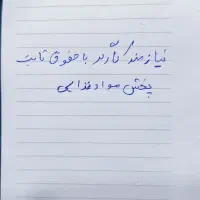 نیازمند کارگر با حقوق ثابت
پخش مواد غذایی